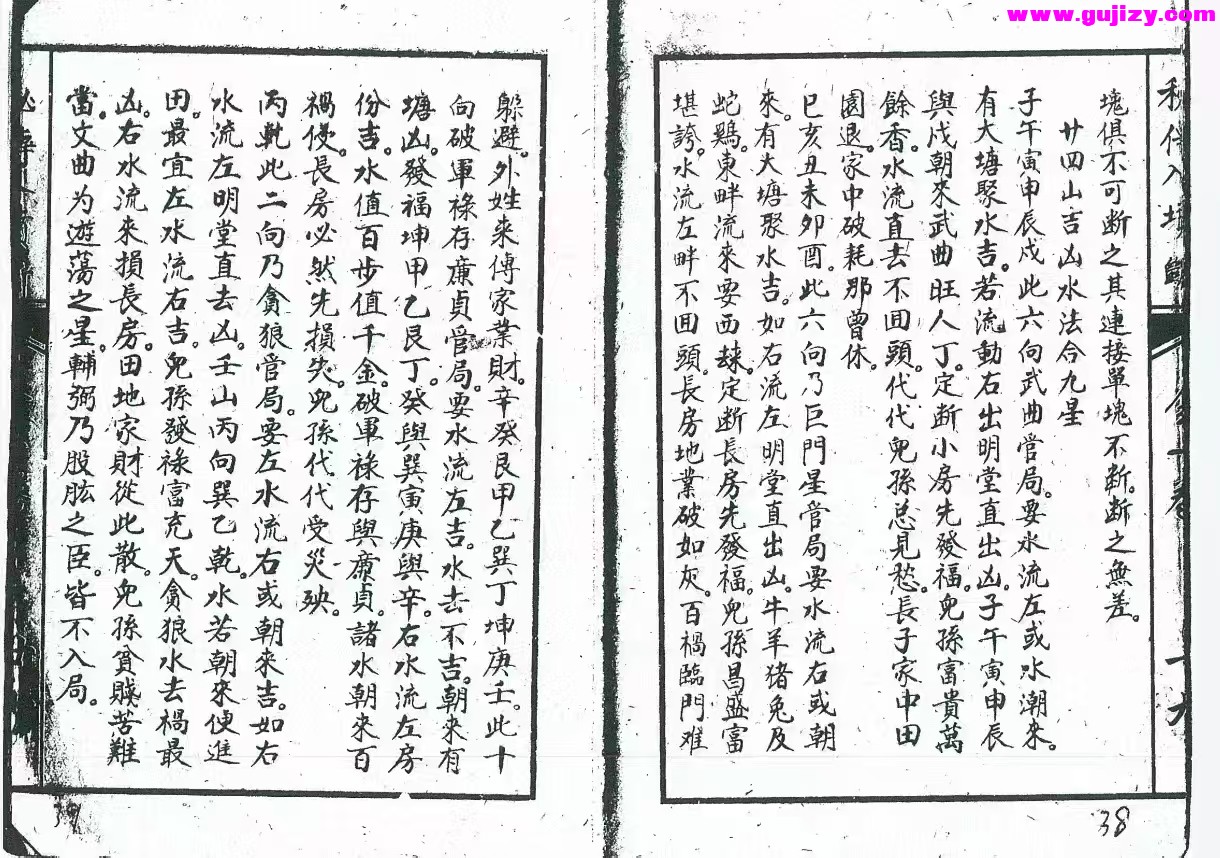 www.gujizy.com
塊俱不可断之其連接單塊不断。断之無差。
廿四山吉凶水法合九星
子午寅申辰戍此六向武曲管局。要水流左或水潮来。
有大塘聚水吉。若流動右出明堂直出凶。子午寅申辰
與戍朝来武曲旺人丁。定断小房先發福。兒孫富貴萬
餘香。水流直去不囬頭。代代兒孫总見愁。長子家中田
園退。家中破耗那曾休。
巳亥丑未夘酉。此六向乃巨門星管局要水流右或朝
來。有大塘聚水吉。如右流左明堂直出凶。牛羊猪兔及
蛇鷄。東畔流来要西。定断長房先發福。兒孫昌盛富
堪誇。水流左畔不囬頭。長房地業破如灰。百禍臨門难
躲避。外姓来傳家業財。辛癸艮甲乙巽丁坤庚壬。此十
向破軍祿存廉貞管局。要水流左吉。水去不吉。朝来有
塘凶。發福坤甲乙艮丁。癸與巽寅庚與辛。右水流左房
份吉。水值百步值千金。破軍祿存與廉貞。諸水朝来百
禍侵。長房必然先損失。兒孫代代受災殃。
丙乹此二向乃貪狼管局要左水流右或朝来吉。如右
水流左明堂直去凶。壬山丙向巽乙乾。水若朝來便進
田。最宜左水流右吉。兒孫發祿富充天。貪狼水去禍最
凶。右水流来損長房。田地家財從此散。兒孫貧賤苦難
當。文曲为遊蕩之星。輔弼乃股肱之臣。皆不入局。
38